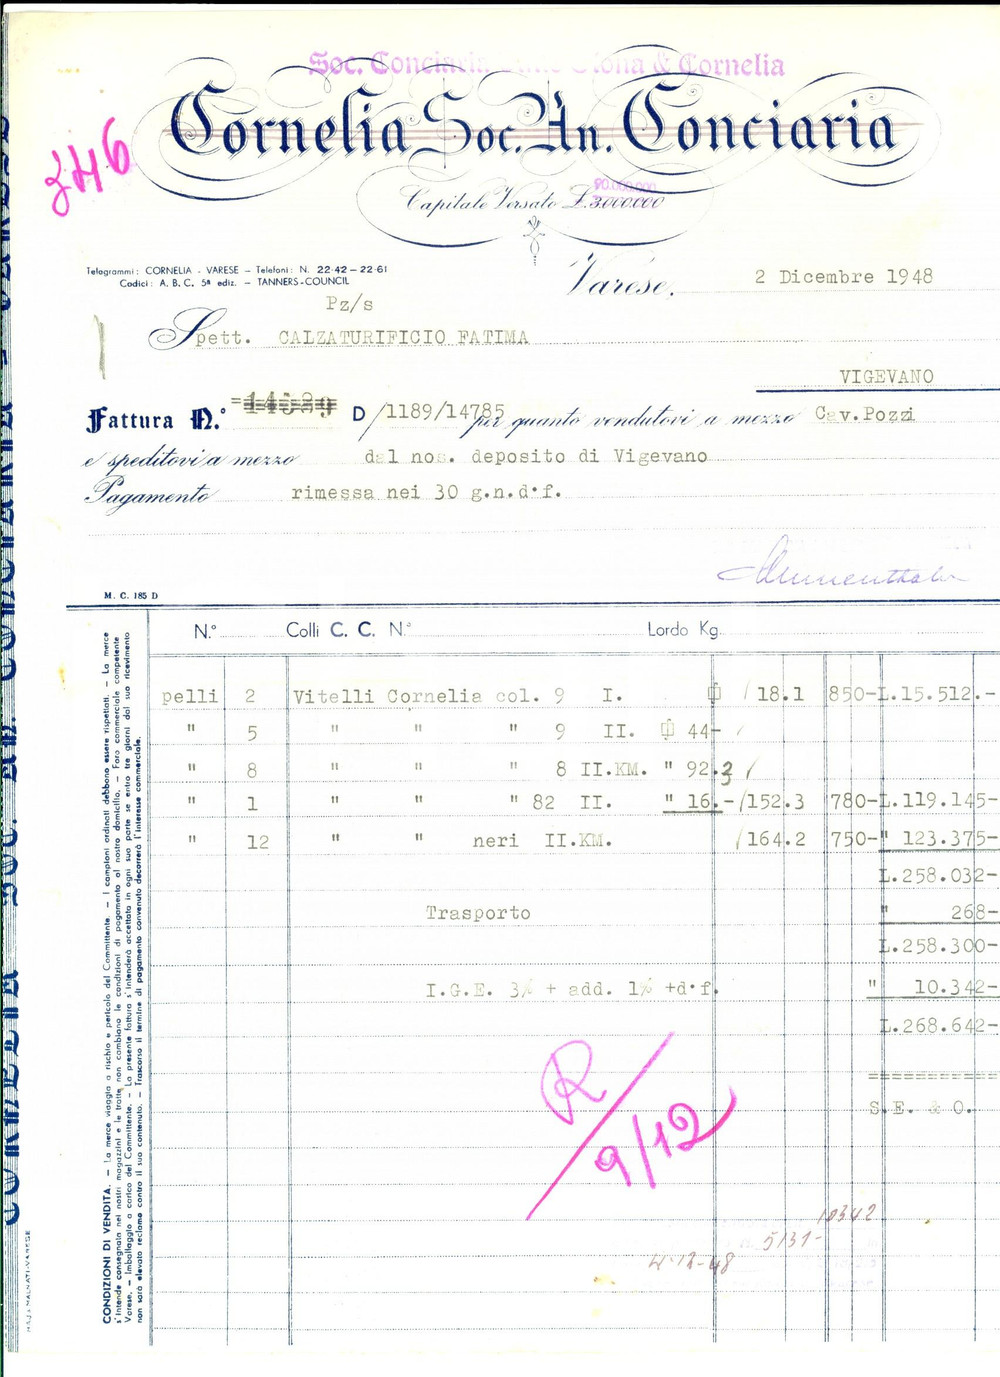 Soc. Conciaria & Cornelia
Cornelia Soc. An. Conciaria
346
90.000.000
Capitale Versato £. 3.000.000
Telegrammi: CORNELIA - VARESE - Telefoni: N. 22-42 - 22-61
Codici: A. B. C. 5ª ediz. - TANNERS-COUNCIL
Varese, 2 Dicembre 1948
Pz/s
Spett. CALZATURIFICIO FATIMA
VIGEVANO
Fattura N.° D/1189/14785 per quanto vendutovi a mezzo Cav.Pozzi
e speditovi a mezzo dal nos. deposito di Vigevano
Pagamento rimessa nei 30 g.n.d.f.
M. C. 185 D
N.° Colli C. C. N.° Lordo Kg.
pelli 2 Vitelli Cornelia col. 9 I. / 18.1 850- L.15.512.-
" 5 " " " 9 II. 44- /
" 8 " " " 8 II.KM. " 92.3 /
" 1 " " " 82 II. " 16.- /152.3 780- L.119.145-
" 12 " " neri II.KM. /164.2 750- " 123.375-
L.258.032-
Trasporto " 268-
L.258.300-
I.G.E. 3% + add. 1% +d.f. " 10.342-
L.268.642-
==============
S.E. & O.
R
9/12
10342
5131-
4-12-48
CONDIZIONI DI VENDITA. — La merce viaggia a rischio e pericolo del Committente. — I campioni ordinati debbono essere rispettati. — La merce
s'intende consegnata nei nostri magazzini e le tratte non cambiano le condizioni di pagamento al nostro domicilio. — Foro commerciale competente
Varese. — Imballaggio a carico del Committente. — La presente fattura s'intenderà accettata in ogni sua parte se entro tre giorni dal suo ricevimento
non sarà elevato reclamo contro il suo contenuto. — Trascorso il termine di pagamento convenuto decorrerà l'interesse commerciale.
CORNELIA SOC. AN. CONCIARIA - VARESE
MALNATI-VARESE